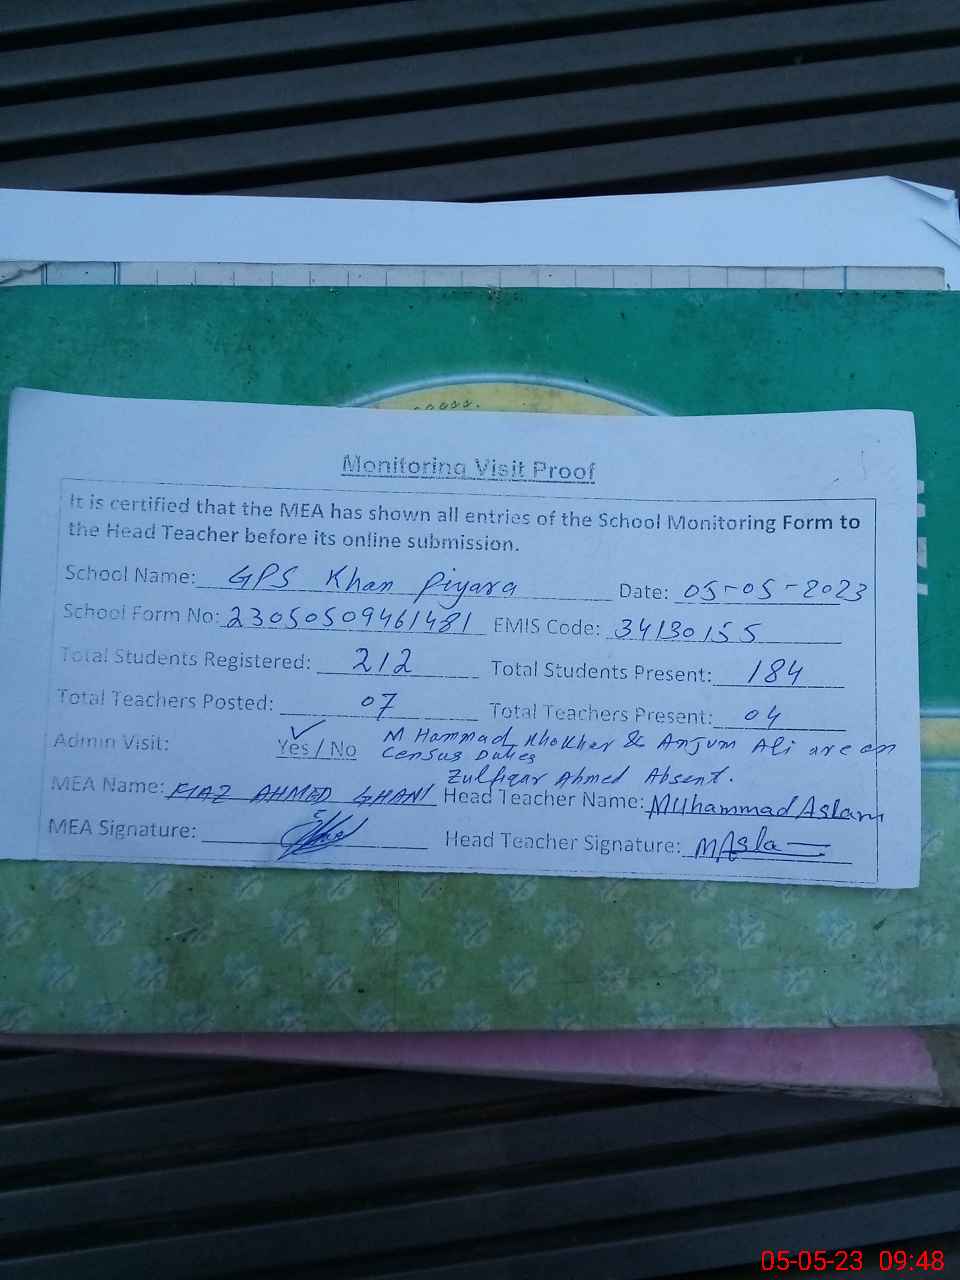 Monitoring Visit Proof
It is certified that the MEA has shown all entries of the School Monitoring Form to
the Head Teacher before its online submission.
School Name: GPS Khan Piyara Date: 05-05-2023
School Form No: 23050509461481 EMIS Code: 34130155
Total Students Registered: 212 Total Students Present: 184
Total Teachers Posted: 07 Total Teachers Present: 04
Admin Visit: Yes / No M Hammad Khokhar & Anjum Ali are on
Census Duties
Zulfiqar Ahmed Absent.
MEA Name: AHMED GHANI Head Teacher Name: Muhammad Aslam
MEA Signature: Head Teacher Signature: MAsla
05-05-23 09:48